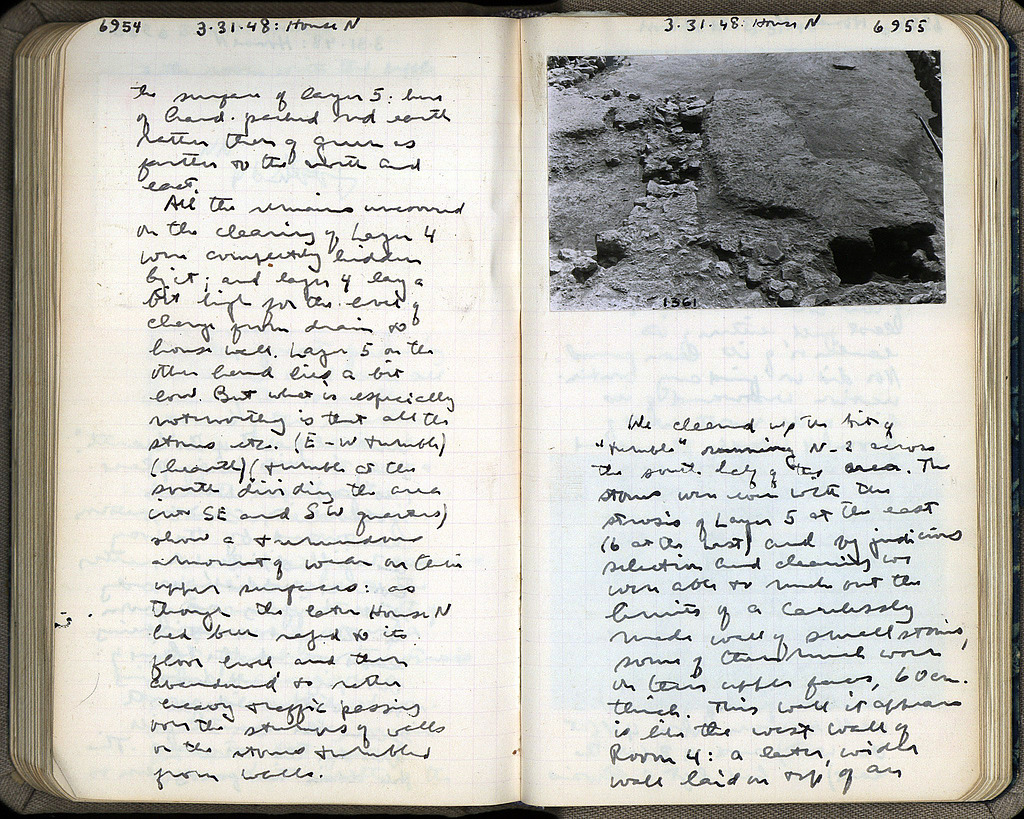 6954 3·31·48: House N
the surface of layer 5: here
of hard-packed red earth
rather than of green as
farther to the north and
east.
All the remains uncovered
on the clearing of Layer 4
were completely hidden
by it; and layer 4 lay a
bit high for the level of
change from drain to
house wall. Layer 5 on the
other hand lies a bit
low. But what is especially
noteworthy is that all the
stones etc. (E-W tumble)
(hearth) (tumble at the
south dividing the area
into SE and SW quarters)
show a tremendous
amount of wear on their
upper surfaces: as
though the later House N
had been razed to its
floor level and then
abandoned to rather
heavy traffic passing
over the stumps of walls
or the stones tumbled
from walls.
3·31·48: House N 6955
1361
We cleaned up the bit of
"tumble" running N-S across
the south half of the area. The
stones were even with the
strosis of Layer 5 at the east
(6 at the west) and by judicious
selection and cleaning we
were able to make out the
limits of a carelessly
made wall of small stones,
some of them much worn
on their upper faces, 60cm.
thick. This wall it appears
is like the west wall of
Room 4: a later, wider
wall laid on top of an